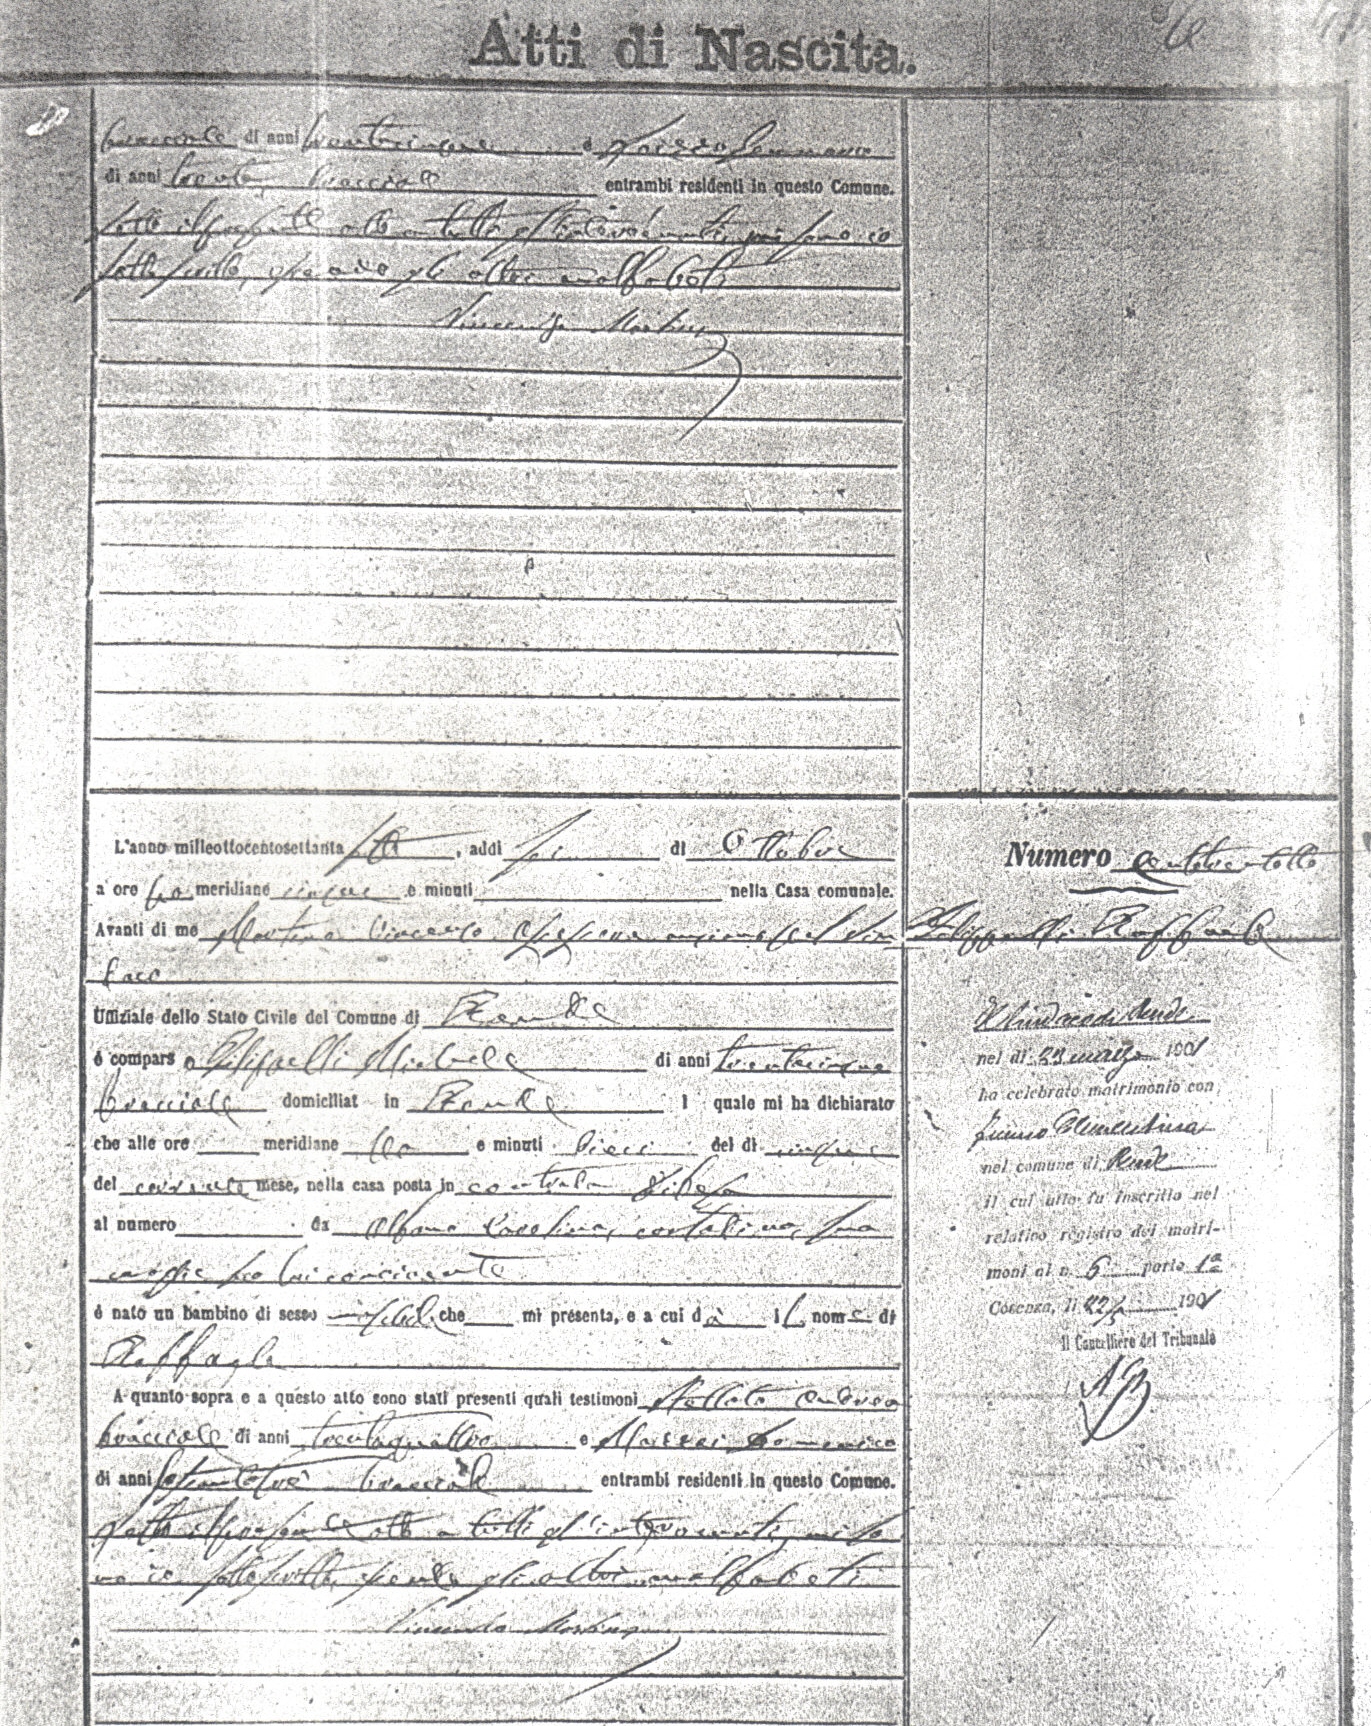 Atti di Nascita.
bracciale di anni trentacinque e Gennaro
di anni trenta, bracciale entrambi residenti in questo Comune.
Letto il presente atto a tutti gl'intervenuti, mi sono io
sottoscritto, essendo gli altri analfabeti
Vincenzo Martino
L'anno milleottocentosettanta sette, addì sei di Ottobre
a ore pomeridiane cinque e minuti nella Casa comunale.
Avanti di me Martino Vincenzo, Assessore anziano pel Sin
daco
Uffiziale dello Stato Civile del Comune di Rende
è comparso Filippelli Michele di anni trentacinque
bracciale domiciliat in Rende l quale mi ha dichiarato
che alle ore meridiane e minuti dieci del dì cinque
del corrente mese, nella casa posta in contrada
al numero da Albano contadina, sua
moglie seco lui convivente
è nato un bambino di sesso che mi presenta, e a cui dà il nome di
Raffaele
A quanto sopra e a questo atto sono stati presenti quali testimoni Stellato Andrea
bracciale di anni trentaquattro e Mazzei Domenico
di anni settantatrè bracciale entrambi residenti in questo Comune.
Letto il presente atto a tutti gl'intervenuti, mi so
no io sottoscritto, essendo gli altri analfabeti
Vincenzo Martino
Numero centotrentotto
Filippelli Raffaele
Il Sindaco di Rende
nel dì 23 marzo 1901
ha celebrato matrimonio con
Clementina
nel comune di Rende
il cui atto fu inscritto nel
relativo registro dei matri-
moni al n. 6 parte 1ª
Cosenza, lì 22/5 1901
Il Cancelliere del Tribunale